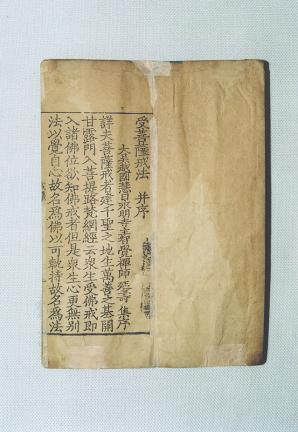 受菩薩戒法 并序
大吳越國慧日永明寺主智覺禪師延壽 集序
詳夫菩薩戒者建千聖之地生萬善之基開
甘露門入菩提路梵網經云衆生受佛戒即
入諸佛位欲知佛戒者但是衆生心更無別
法以覺自心故名為佛以可軌持故名為法